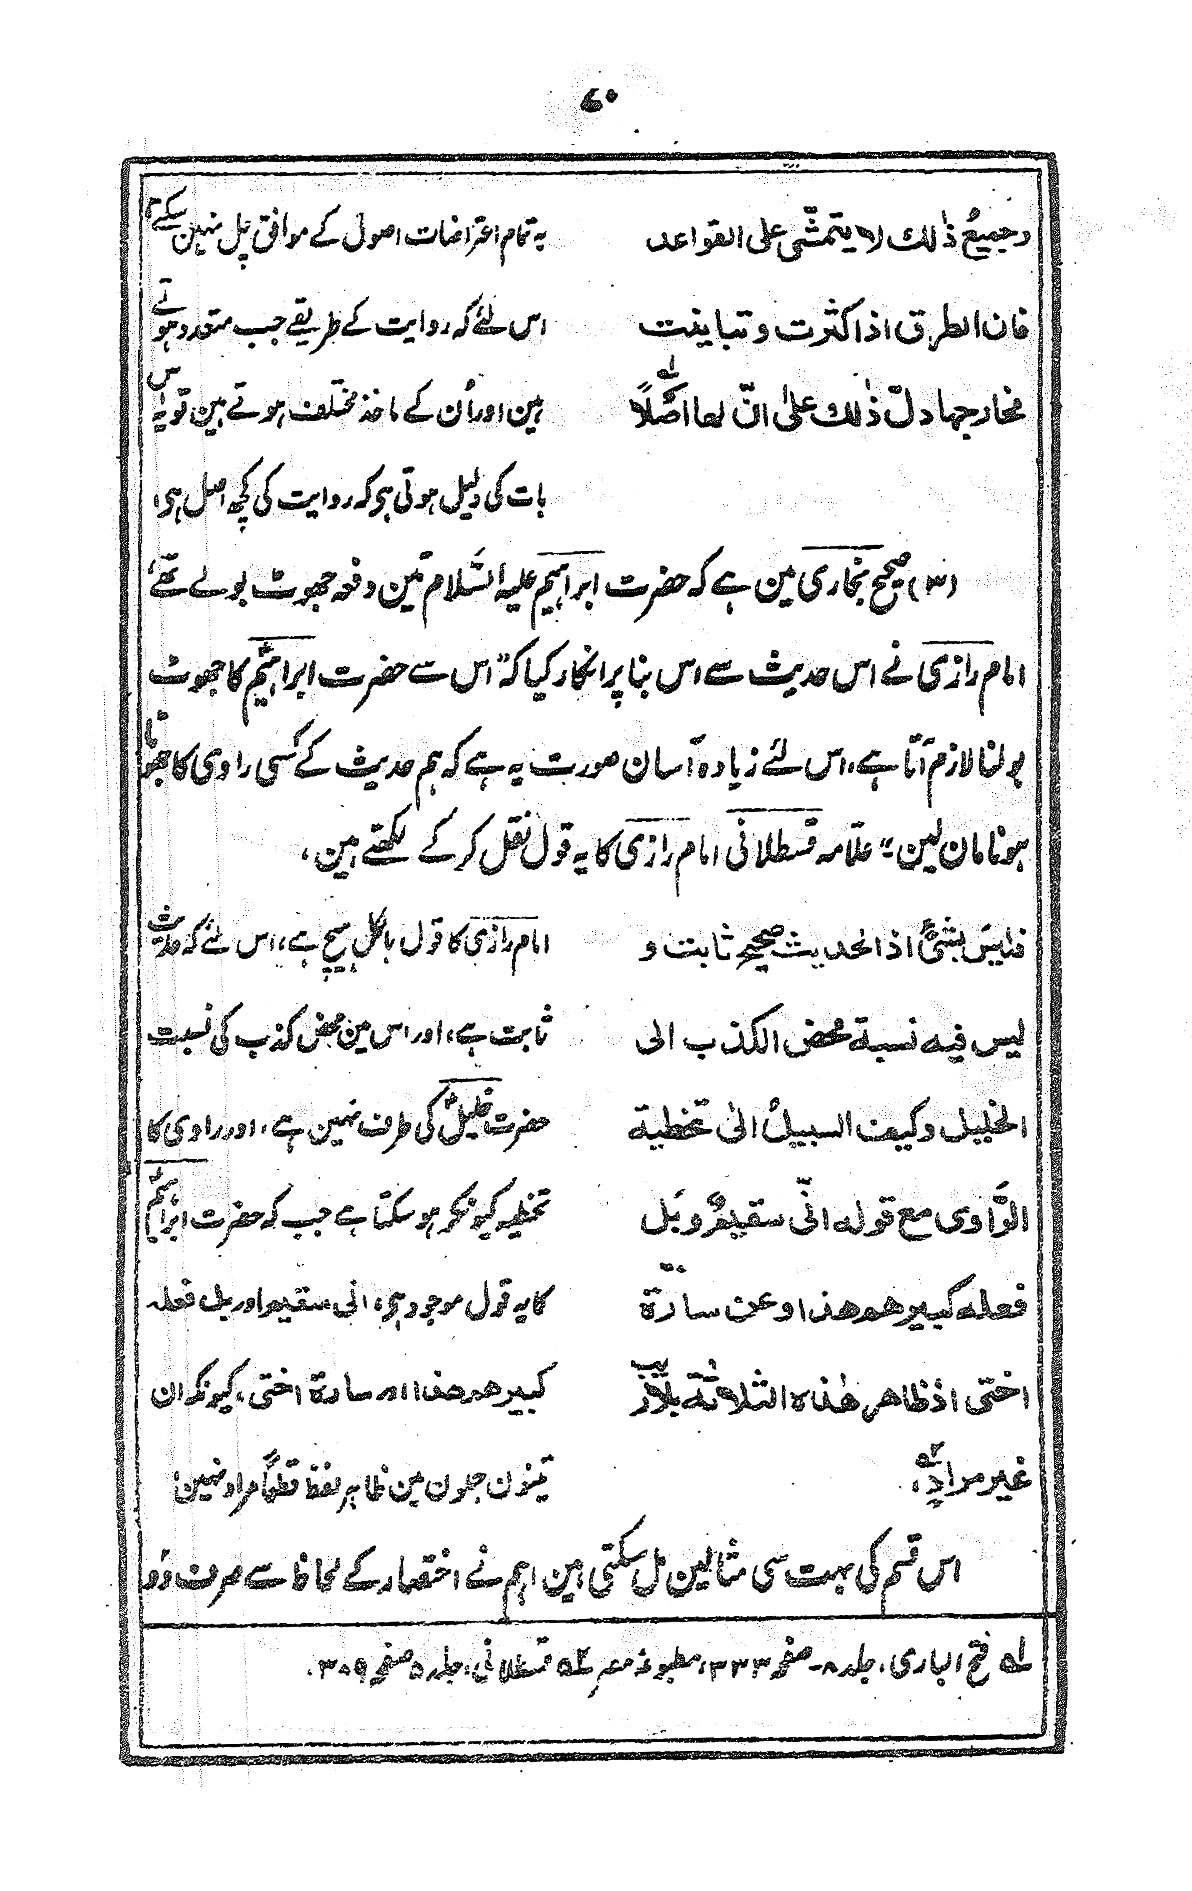 ۷۰
وجمیعُ ذٰلك لا یتمشّی علی القواعد
یہ تمام اعتراضات اصول کے موافق چل نہین سکتے
فان الطرق اذا کثرت و تباینت
اس لئے کہ روایت کے طریقے جب متعدد ہوتے
مخارجہا دلّ ذٰلك علیٰ انّ لھا اصلًا ۱؎
ہین اور اُن کے ماخذ مختلف ہوتے ہین تو یہ اس
بات کی دلیل ہوتی ہی کہ روایت کی کچھ اصل ہی،
(۳) صحیح بخاری مین ہے کہ حضرت ابراہیم علیہ السَّلام تین دفعہ جھوٹ بولے تھے،
امام رازی نے اس حدیث سے اس بنا پر انکار کیا کہ "اس سے حضرت ابراہیمؑ کا جھوٹ
بولنا لازم آتا ہے، اس لئے زیادہ آسان صورت یہ ہے کہ ہم حدیث کے کسی راوی کا جھوٹا
ہونا مان لین،" علامہ قسطلانی امام رازی کا یہ قول نقل کر کے لکھتے ہین،
فلیس بشئٍ اذ الحدیث صحیح ثابت و
امام رازی کا قول بالکل ہیچ ہے، اس لئے کہ حدیث
لیس فیہ نسبة محض الکذب الی
ثابت ہے، اور اس مین محض کذب کی نسبت
الخلیل وکیف السبیل الیٰ تخطیة
حضرت خلیلؑ کی طرف نہین ہے، اور راوی کا
الرّاوی مع قولہ انّی سقیمٌ و بَل
تخطیہ کیونکر ہو سکتا ہے جب کہ حضرت ابراہیمؑ
فعلہ کبیرھم ھٰذا وعن سارّة
کا یہ قول موجود ہی، انی سقیم اور بل فعلہ
اختی اذ ظاھر ھٰذہ الثلاثة بلا ریب
کبیرھم ھذا اور سارة اختی، کیونکہ ان
غیر مرادٍ، ۲؎
تینون جملون مین ظاہر لفظ قطعاً مراد نہین،
اس قسم کی بہت سی مثالین مل سکتی ہین ہم نے اختصار کے لحاظ سے صرف دو
۱؎ فتح الباری، جلد ۸۔ صفحہ ۳۳۳، مطبوعۂ مصر ۲؎ قسطلانی، جلد ۵ صفحہ ۳۰۹،